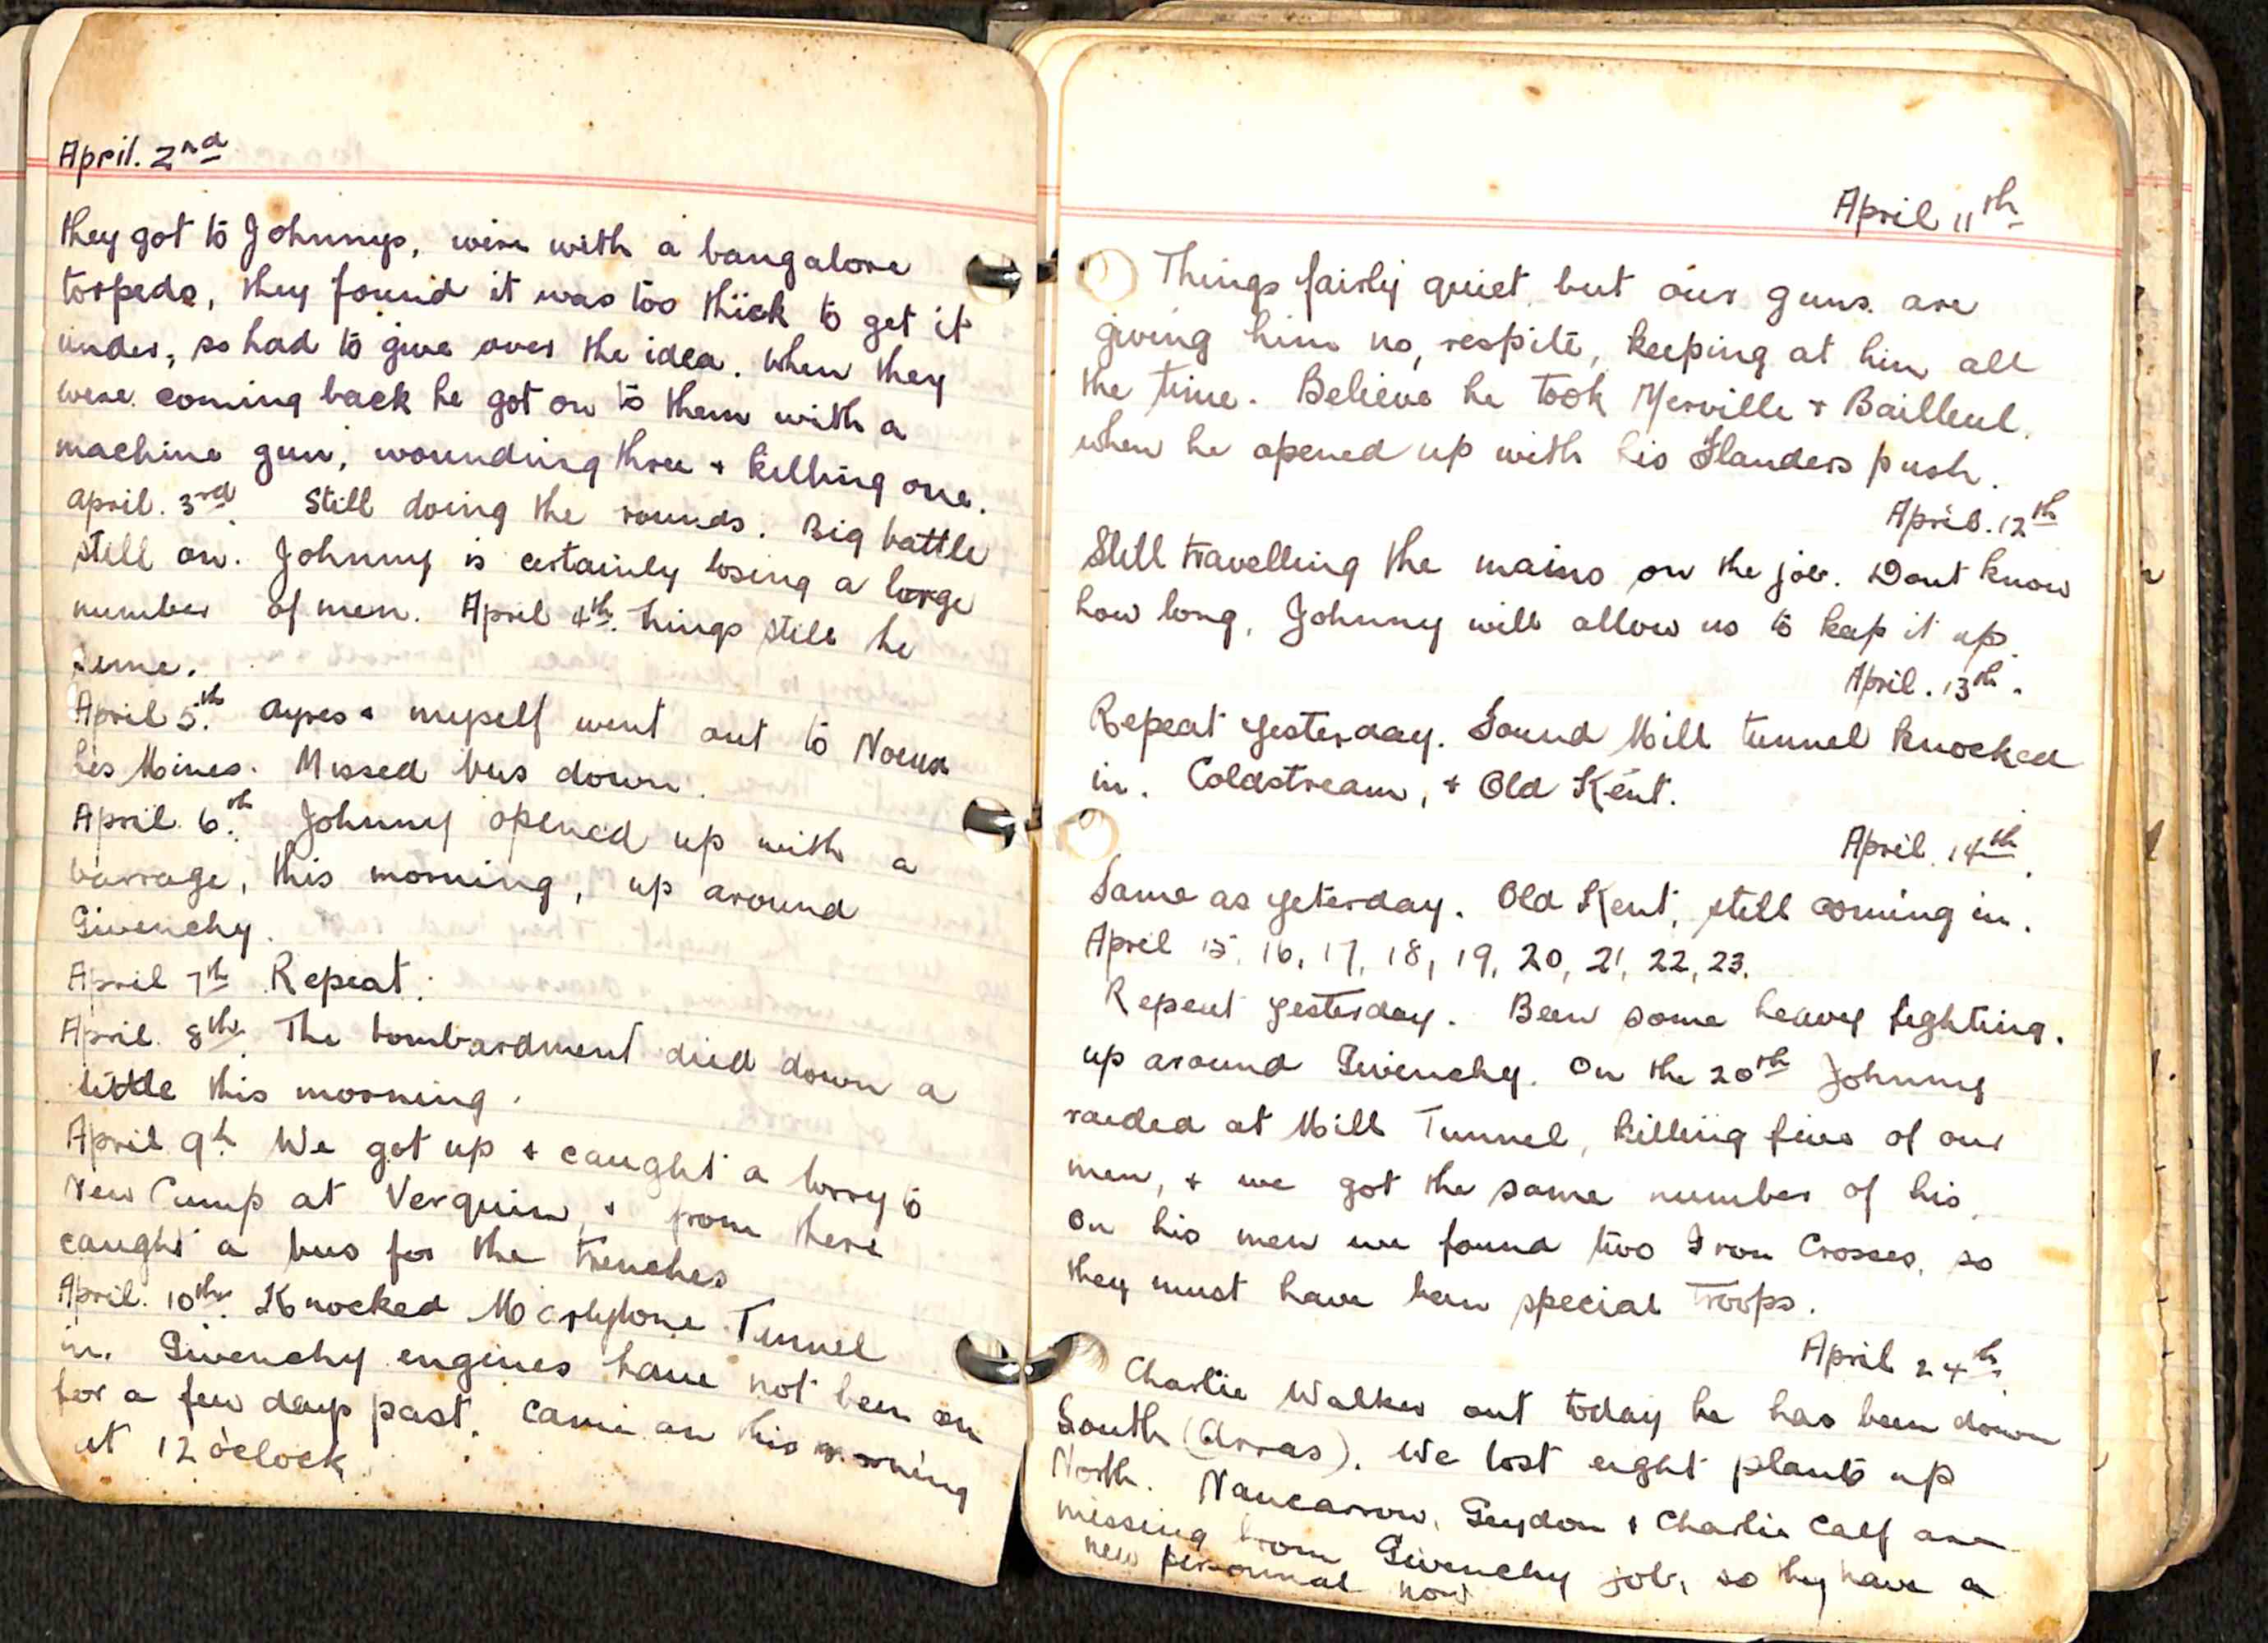 April. 2nd
they got to Johnnys, wire with a bangalore
torpedo, they found it was too thick to get it
under, so had to give over the idea. When they
were coming back he got on to them with a
machine gun, wounding three + killing one.
April. 3rd. Still doing the rounds. Big battle
still on. Johnny is certainly losing a large
number of men. April 4th. things still he
seme.
April 5th. Ayres + myself went out to Noeux
les Mines. Missed bus down.
April 6th. Johnny opened up with a
barrage, this morning, up around
Givenchy.
April 7th Repeat.
April 8th. The bombardment died down a
little this morning.
April 9th. We got up + caught a lorry to
New Camp at Verquin, + from there
caught a bus for the trenches
April. 10th. Knocked Marlybone Tunnel
in. Givenchy engines have not been on
for a few days past, came on this morning
at 12 o'clock
April 11th
Things fairly quiet, but our guns are
giving him no, respite, keeping at him all
the time. Believe he took Merville + Bailleul.
when he opened up with his Flanders push.
April. 12th
Still travelling the mains on the job. Dont know
how long, Johnny will allow us to keep it up.
April. 13th.
Repeat yesterday. Found Mill tunnel knocked
in. Coldstream, + Old Kent.
April. 14th.
Same as yeterday. Old Kent, still coming in.
April 15, 16, 17, 18, 19, 20, 21, 22, 23.
Repeat yesterday. Been some heavy fighting.
up around Givenchy. On the 20th Johnny
raided at Mill Tunnel, killing five of our
men, + we got the same number of his.
On his men we found two Iron Crosses, so
they must have been special troops.
April 24th.
Charlie Walker out today he has been down
South (Arras). We lost eight plants up
North. Nancarrow, Geydon + Charlie Calf are
missing from Givenchy job, so they have a
new personnal now